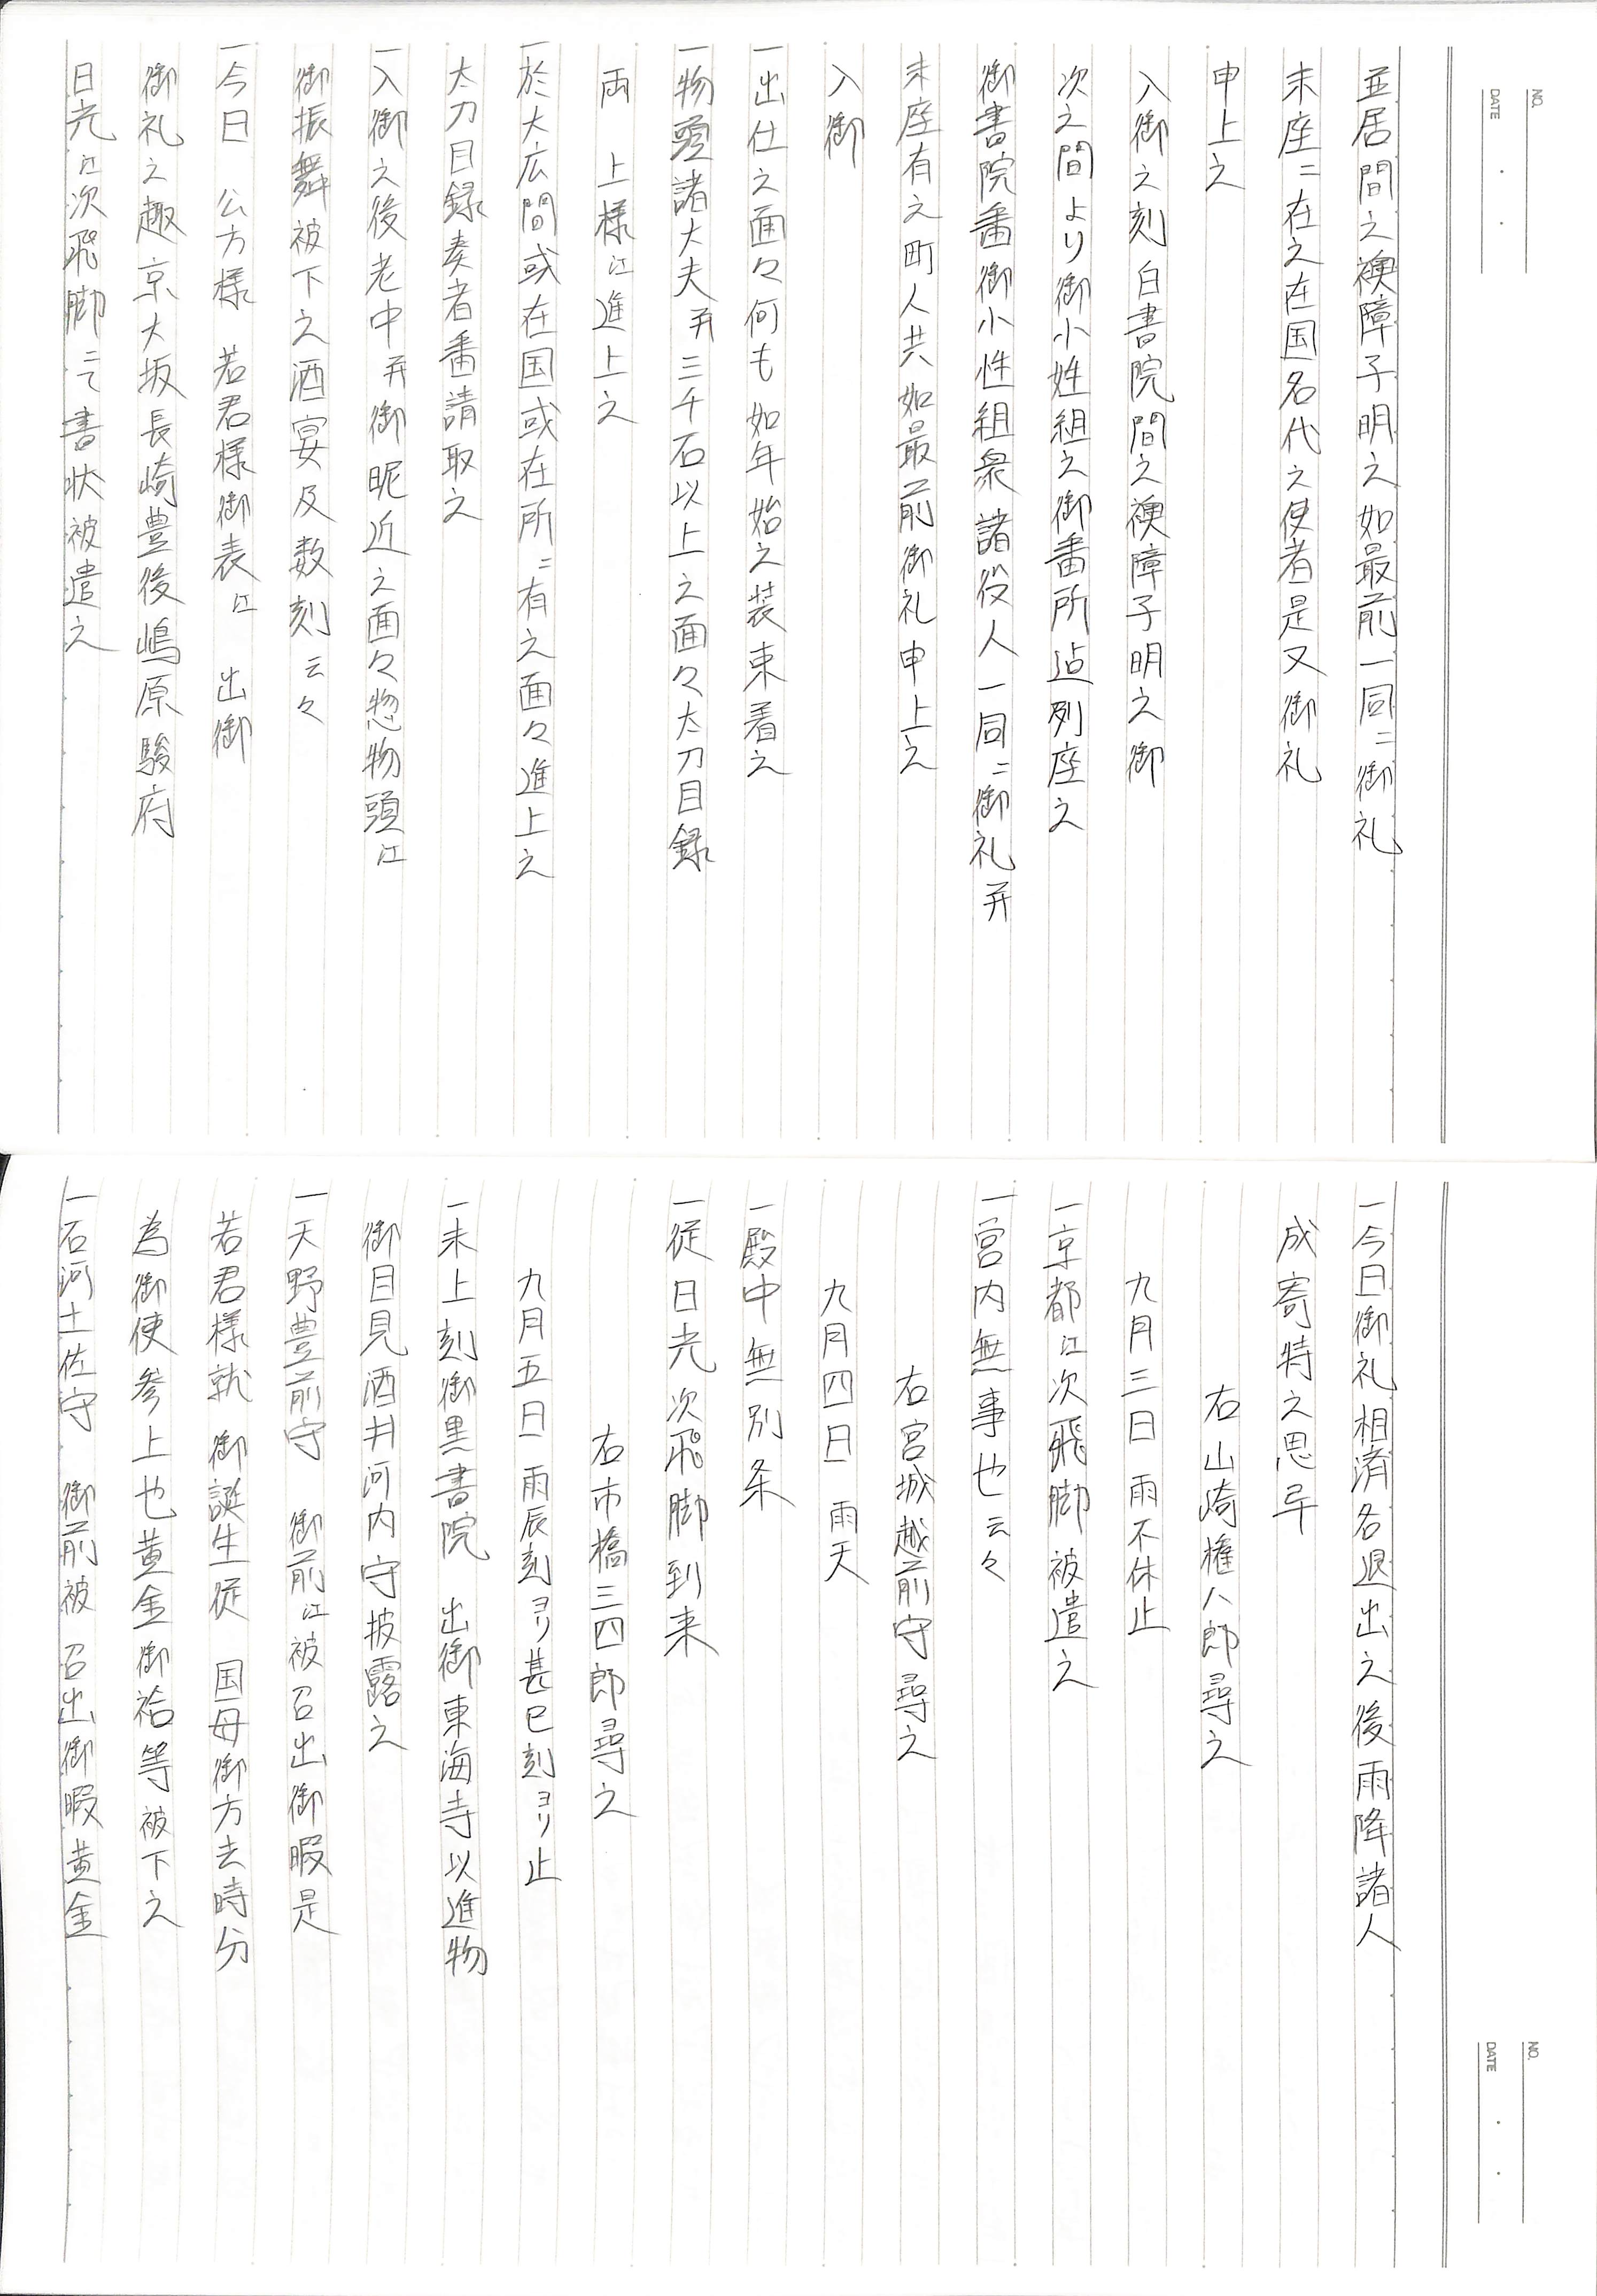 NO.
DATE
並居間之襖障子明之如最前一同ニ御礼
末座ニ在之在国名代之使者是又御礼
申上之
入御之刻白書院間之襖障子明之御
次之間より御小姓組之御番所迠列座之
御書院番御小性組衆諸役人一同ニ御礼并
末座有之町人共如最前御礼申上之
入御
一出仕之面々何も如年始之装束着之
一物頭諸大夫并三千石以上之面々太刀目録
両　上様江進上之
一於大広間或在国或在所ニ有之面々進上之
太刀目録奏者番請取之
一入御之後老中并御昵近之面々惣物頭江
御振舞被下之酒宴及数刻云々
一今日　公方様　若君様御表江　出御
御礼之趣京大坂長崎豊後嶋原駿府
日光江次飛脚ニて書状被遣之
NO.
DATE
一今日御礼相済各退出之後雨降諸人
成寄特之思㕝
右山崎権八郎尋之
九月三日　雨不休止
一京都江次飛脚被遣之
一宮内無事也云々
右宮城越前守尋之
九月四日　雨天
一殿中無別条
一従日光次飛脚到来
右市橋三四郎尋之
九月五日　雨辰刻ヨリ甚巳刻ヨリ止
一未上刻御黒書院　出御東海寺以進物
御目見酒井河内守披露之
一天野豊前守　御前江被召出御暇是
若君様就　御誕生従　国母御方去時分
為御使参上也黄金御袷等被下之
一石河土佐守　御前被　召出御暇黄金